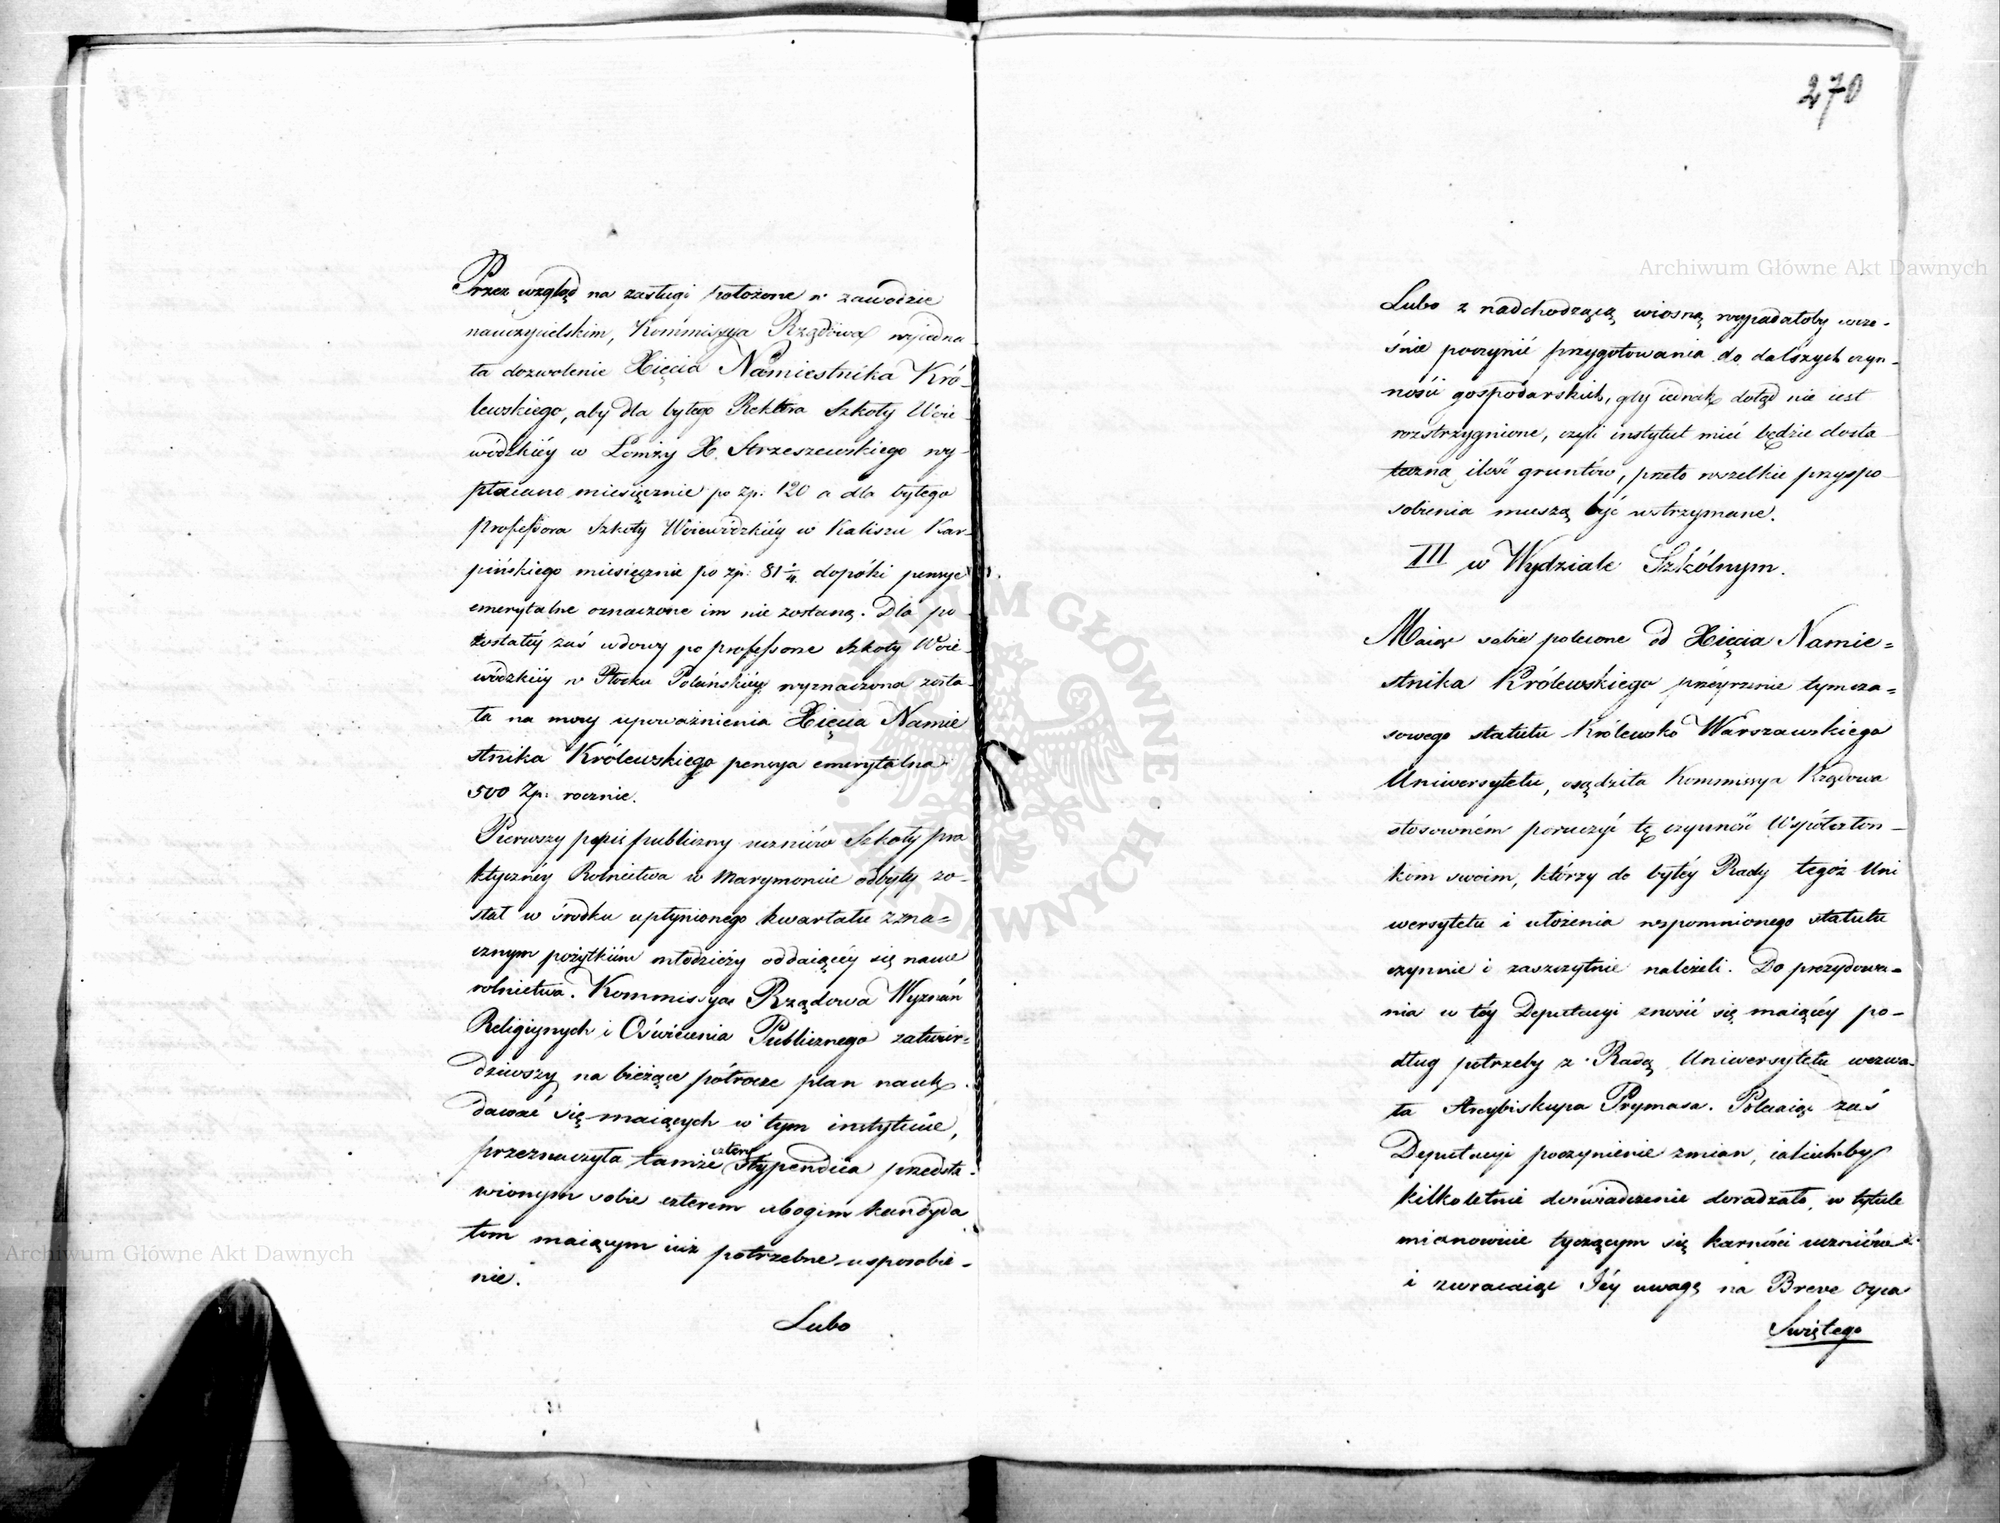 Przez wzgląd na zasługi położone w zawodzie
nauczycielskim, Kommissya Rządowa wyiedna
ła dozwolenie Xięcia Namiestnika Kró-
lewskiego, aby dla byłego Rektora Szkoły Woie
wódzkiéy w Łomży X. Strzeszewskiego wy-
płacano miesięcznie po zp: 120 a dla byłego
professora Szkoły Woiewódzkiéy w Kaliszu Kar-
pińskiego miesięcznie po zp: 81 1/4. dopóki pensye
emerytalne oznaczone im nie zostaną. Dla po
zostałéy zaś wdowy po professorze Szkoły Woie-
wódzkiéy w Płocku Polańskiéy wyznaczona zosta-
ła na mocy upoważnienia Xięcia Namie
stnika Królewskiego pensya emerytalna
500 Zp: rocznie.
Pierwszy popis publiczny uczniów Szkoły pra
ktycznéy Rolnictwa w Marymoncie odbyty zo-
stał w środku upłynionego kwartału z zna=
cznym pożytkiem młodzieży oddaiącéy się nauce
rolnictwa. Kommissya Rządowa Wyznań
Religiynych i Oświecenia Publicznego zatwier=
dziwszy na bieżące półrocze plan nauk
dawać się maiących w tym instytucie,
przeznaczyła tamże cztery stypendia przedsta-
wionym sobie czterem ubogim kandyda
tom maiącym iuż potrzebne usposobie-
nie.
Lubo
270
Lubo z nadchodzącą wiosną wypadałoby wcze-
śnie poczynić przygotowania do dalszych czyn-
ności gospodarskich, gdy iednak dotąd nie iest
rozstrzygnione, czyli instytut mieć będzie dosta-
teczną ilość gruntów, przeto wszelkie przyspo-
sobienia muszą być wstrzymane.
III w Wydziale Szkólnym.
Maiąc sobie polecone od Xięcia Namie=
stnika Królewskiego przeyrzenie tymcza=
sowego statutu Królewsko Warszawskiego
Uniwersytetu, osądziła Kommissya Rządowa
stosowném poruczyć tę czynność Współczłon-
kom swoim, którzy do byłéy Rady tegoż Uni
wersytetu i ułożenia wspomnionego statutu
czynnie i zaszczytnie należeli. Do prezydowa=
nia w téy Deputacyi znosić się maiącéy po-
dług potrzeby z Radą Uniwersytetu wezwa-
ła Arcybiskupa Prymasa. Polecaiąc zaś
Deputacyi poczynienie zmian, iakichby
kilkoletnie doświadczenie doradzało, w tytule
mianowicie tyczącym się karności uczniów
i zwracaiąc Iéy uwagę na Breve Oyca
Swiętego
Archiwum Główne Akt Dawnych
Archiwum Główne Akt Dawnych
ARCHIWUM GŁÓWNE AKT DAWNYCH